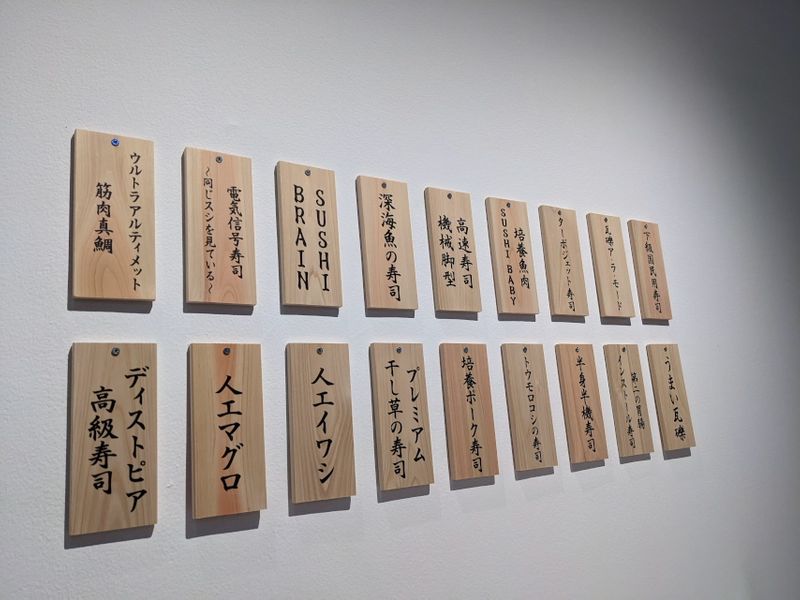 ウルトラアルティメット
筋肉真鯛
電気信号寿司
～同じスシを見ている～
SUSHI
BRAIN
深海魚の寿司
高速寿司
機械脚型
培養魚肉
SUSHI BABY
ターボジェット寿司
瓦礫ア・ラ・モード
下級国民用寿司
ディストピア
高級寿司
人工マグロ
人工イワシ
プレミアム
干し草の寿司
培養ポーク寿司
トウモロコシの寿司
半身半機寿司
第二の胃腸
インストール寿司
うまい瓦礫